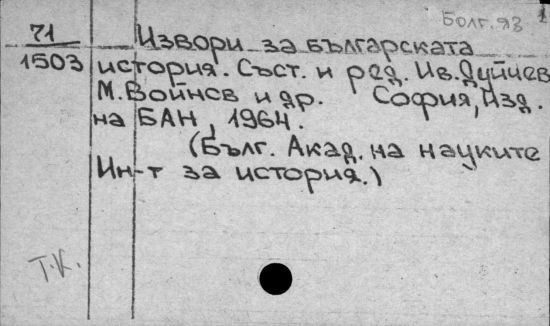 Болг. яз
71
1503
Извори за българската
история. Съст. и ред. Ив. Дуйчев
М. Войнов и др. София, Изд.
на БАН, 1964.
(Бълг. Акад. на науките
Ин-т за история.)
Т.К.